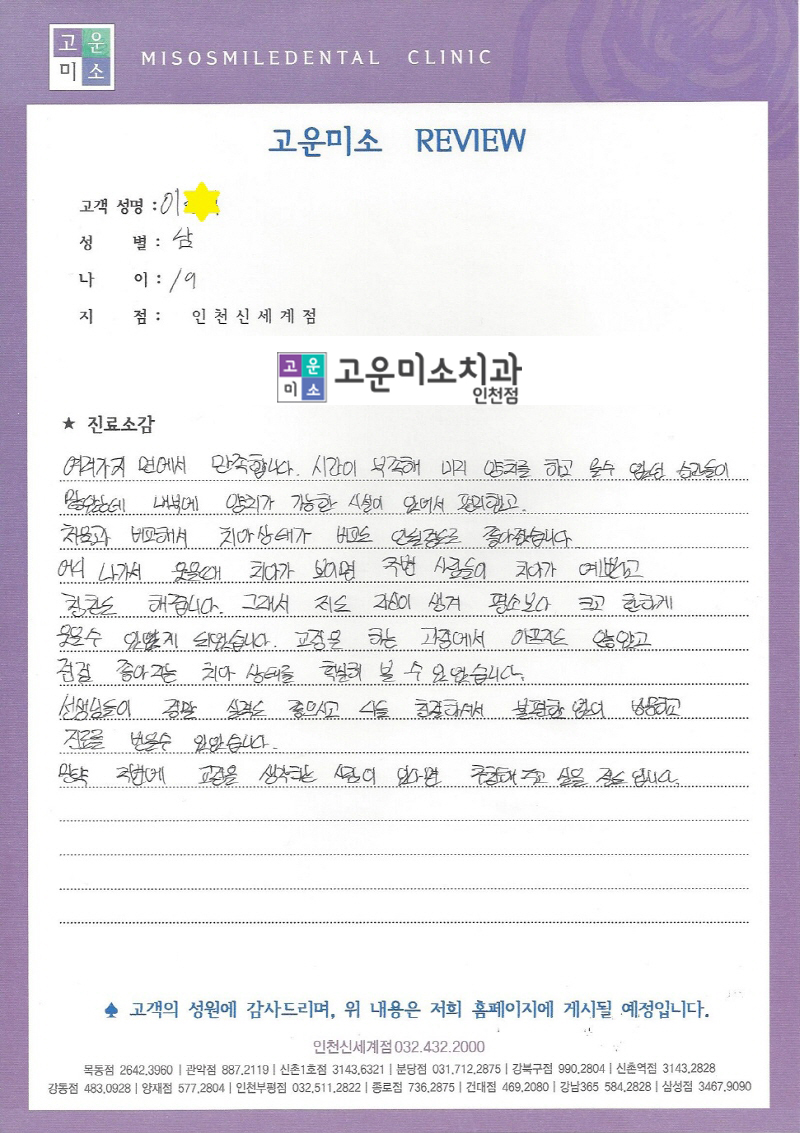 고운
미소
MISOSMILEDENTAL CLINIC
고운미소 REVIEW
고객 성명 : 이
성 별 : 남
나 이 : 19
지 점 : 인천신세계점
고운
미소
고운미소치과
인천점
★ 진료소감
여러가지 면에서 만족합니다. 시간이 부족해 미리 양치를 하고 올수 없던 순간들이
많았는데 내부에 양치가 가능한 시설이 있어서 편리했고.
처음과 비교해서 치아상태가 비교도 안될정도로 좋아졌습니다
어디 나가서 웃을때 치아가 보이면 주변 사람들이 치아가 예쁘다고
칭찬도 해줍니다. 그래서 저도 자신이 생겨 평소보다 크고 환하게
웃을수 있게 되었습니다. 교정을 하는 과정에서 아프지도 않았고
점점 좋아지는 치아 상태를 확실히 볼 수 있었습니다.
선생님들이 정말 실력도 좋으시고 다들 친절하셔서 불편함 없이 방문하고
진료를 받을수 있었습니다.
만약 주변에 교정을 생각하는 사람이 있다면 추천해 주고 싶을 정도 입니다.
♠ 고객의 성원에 감사드리며, 위 내용은 저희 홈페이지에 게시될 예정입니다.
인천신세계점 032.432.2000
목동점 2642.3960 | 관악점 887.2119 | 신촌1호점 3143.6321 | 분당점 031.712.2875 | 강북구점 990.2804 | 신촌역점 3143.2828
강동점 483.0928 | 양재점 577.2804 | 인천부평점 032.511.2822 | 종로점 736.2875 | 건대점 469.2080 | 강남365 584.2828 | 삼성점 3467.9090